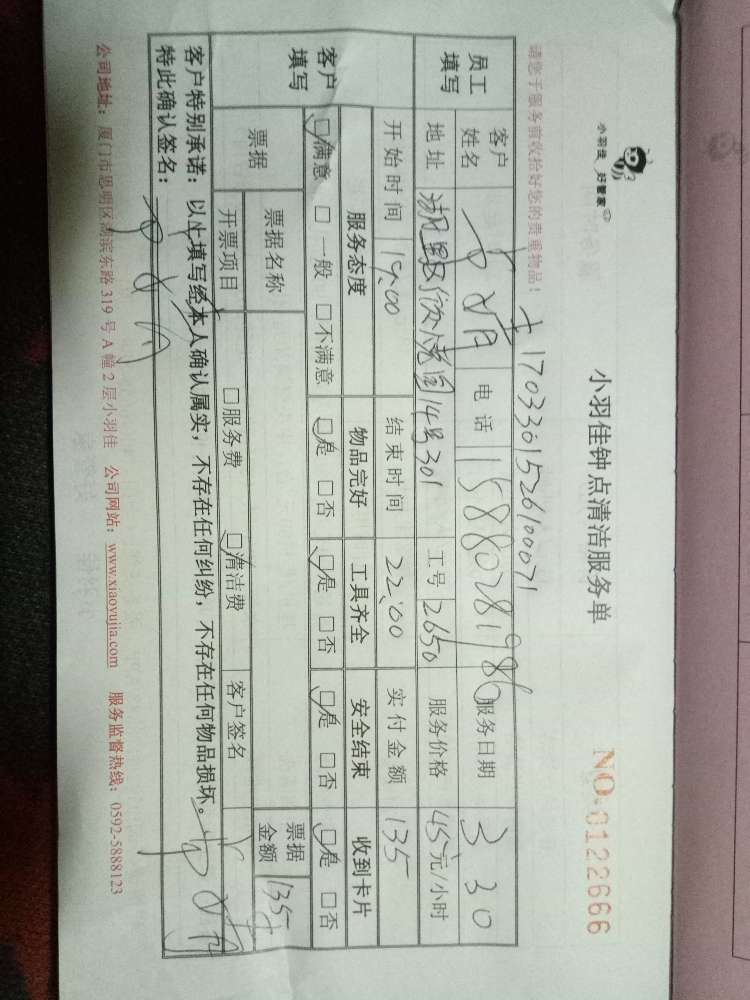 小羽佳 好管家
小羽佳钟点清洁服务单
NO.0122666
请您于服务前收拾好您的贵重物品！
1703301526100071
员工填写 客户姓名 电话 15880281986 服务日期 3 30
地址 14号301 工号 2650 服务价格 45元/小时
开始时间 19:00 结束时间 22:00 实付金额 135
客户填写 服务态度 物品完好 工具齐全 安全结束 收到卡片
☑满意 □一般 □不满意 ☑是 □否 ☑是 □否 ☑是 □否 ☑是 □否
票据 票据名称 票据金额 135
开票项目 □服务费 ☑清洁费 客户签名
客户特别承诺：以上填写经本人确认属实，不存在任何纠纷，不存在任何物品损坏。
特此确认签名：
公司地址：厦门市思明区湖滨东路319号A幢2层小羽佳 公司网站：www.xiaoyujia.com 服务监督热线：0592-5888123